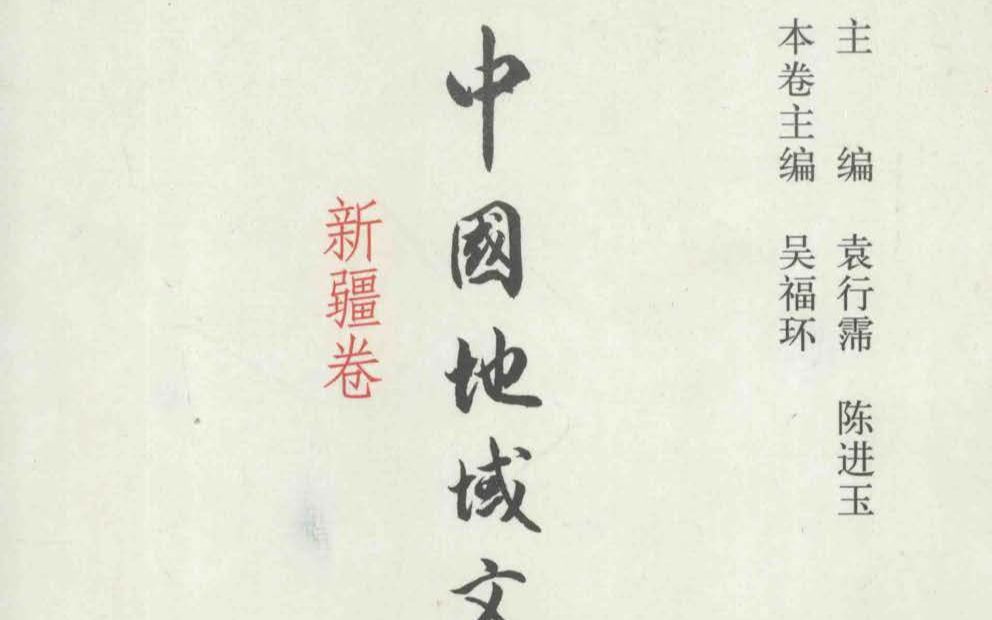 主编 袁行霈 陈进玉
本卷主编 吴福环
中國地域文
新疆卷